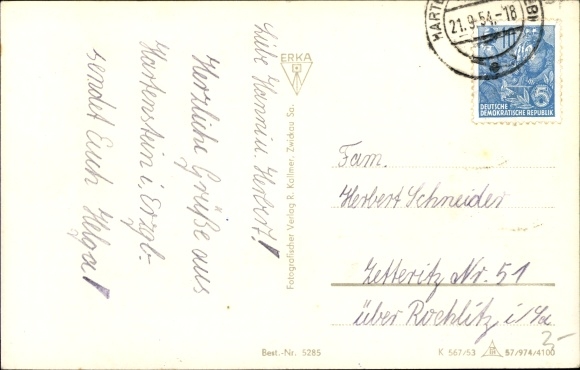 Liebe Hanni u. Herbert!
Herzliche Grüße aus
Hartenstein i. Erzgb.
sendet Euch Helga!
ERKA
Fotografischer Verlag R. Kallmer, Zwickau Sa.
21.9.54.-18
DEUTSCHE
DEMOKRATISCHE REPUBLIK
5
Fam.
Herbert Schneider
Zetteritz Nr. 51
über Rochlitz i/Sa
3-
Best.-Nr. 5285
K 567/53 57/974/4100